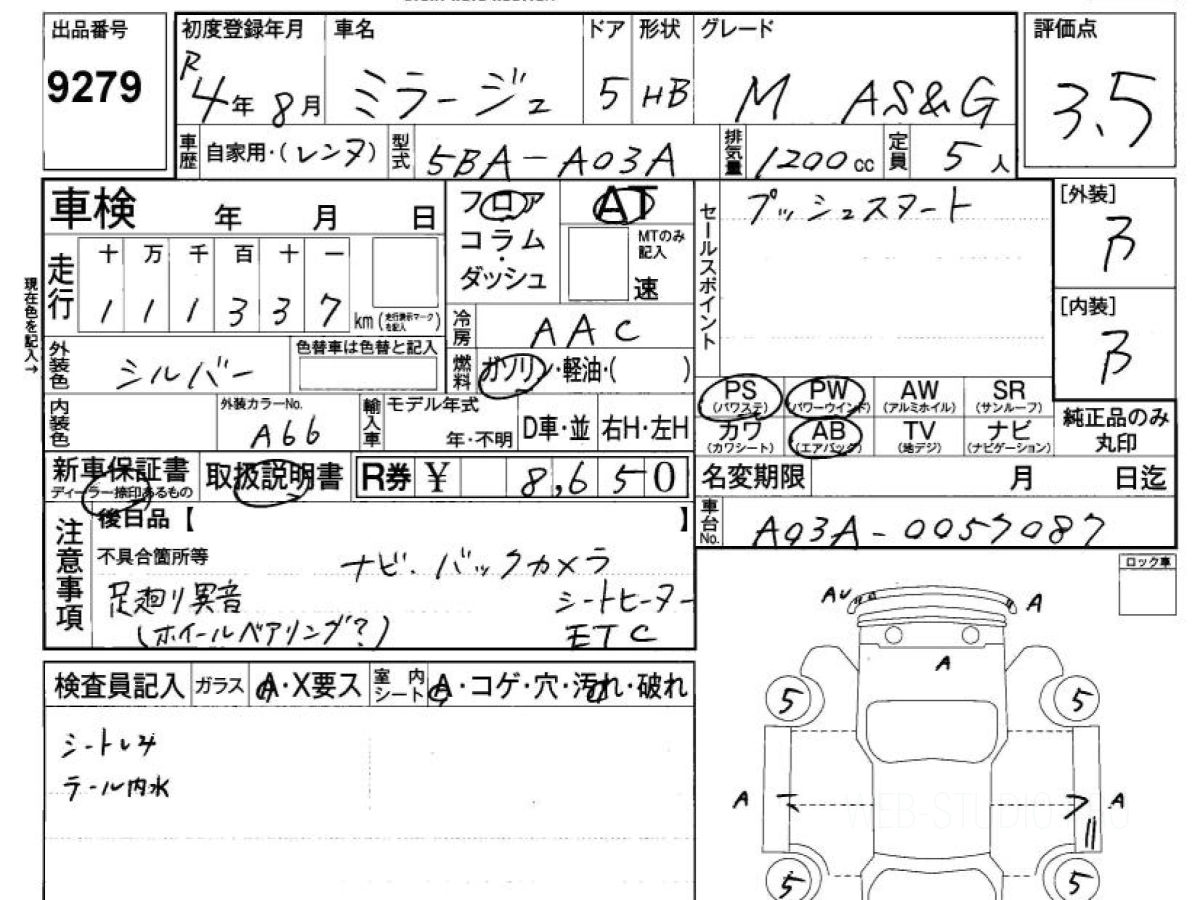 出品番号
9279
初度登録年月
R4年8月
車名
ミラージュ
ドア
5
形状
HB
グレード
M AS&G
評価点
3.5
車歴
自家用・(レンタ)
型式
5BA-A03A
排気量
1200cc
定員
5人
車検 年 月 日
フロア
コラム
ダッシュ
AT
MTのみ記入
速
セールスポイント
プッシュスタート
[外装]
B
[内装]
B
現在色を記入→
走行
十 万 千 百 十 一
1 1 1 3 3 7
km(走行表示マークを記入)
冷房
AAC
外装色
シルバー
色替車は色替と記入
燃料
ガソリン・軽油・( )
PS
(パワステ)
PW
(パワーウインド)
AW
(アルミホイル)
SR
(サンルーフ)
カワ
(カワシート)
AB
(エアバッグ)
TV
(地デジ)
ナビ
(ナビゲーション)
純正品のみ
丸印
内装色
外装カラーNo.
A66
輸入車
モデル年式
年・不明
D車・並
右H・左H
新車保証書
ディーラー捺印あるもの
取扱説明書
R券 ¥ 8,650
名変期限 月 日迄
車台No.
A03A-0057087
注意事項
後日品【 】
不具合箇所等
ナビ・バックカメラ
足廻り異音
シートヒーター
(ホイールベアリング?)
ETC
ロック車
AU
A
A
検査員記入
ガラス
A・X要ス
室内シート
A・コゲ・穴・汚れ・破れ
テール内水
5
5
A
A
5
5
WEB-STUDIO